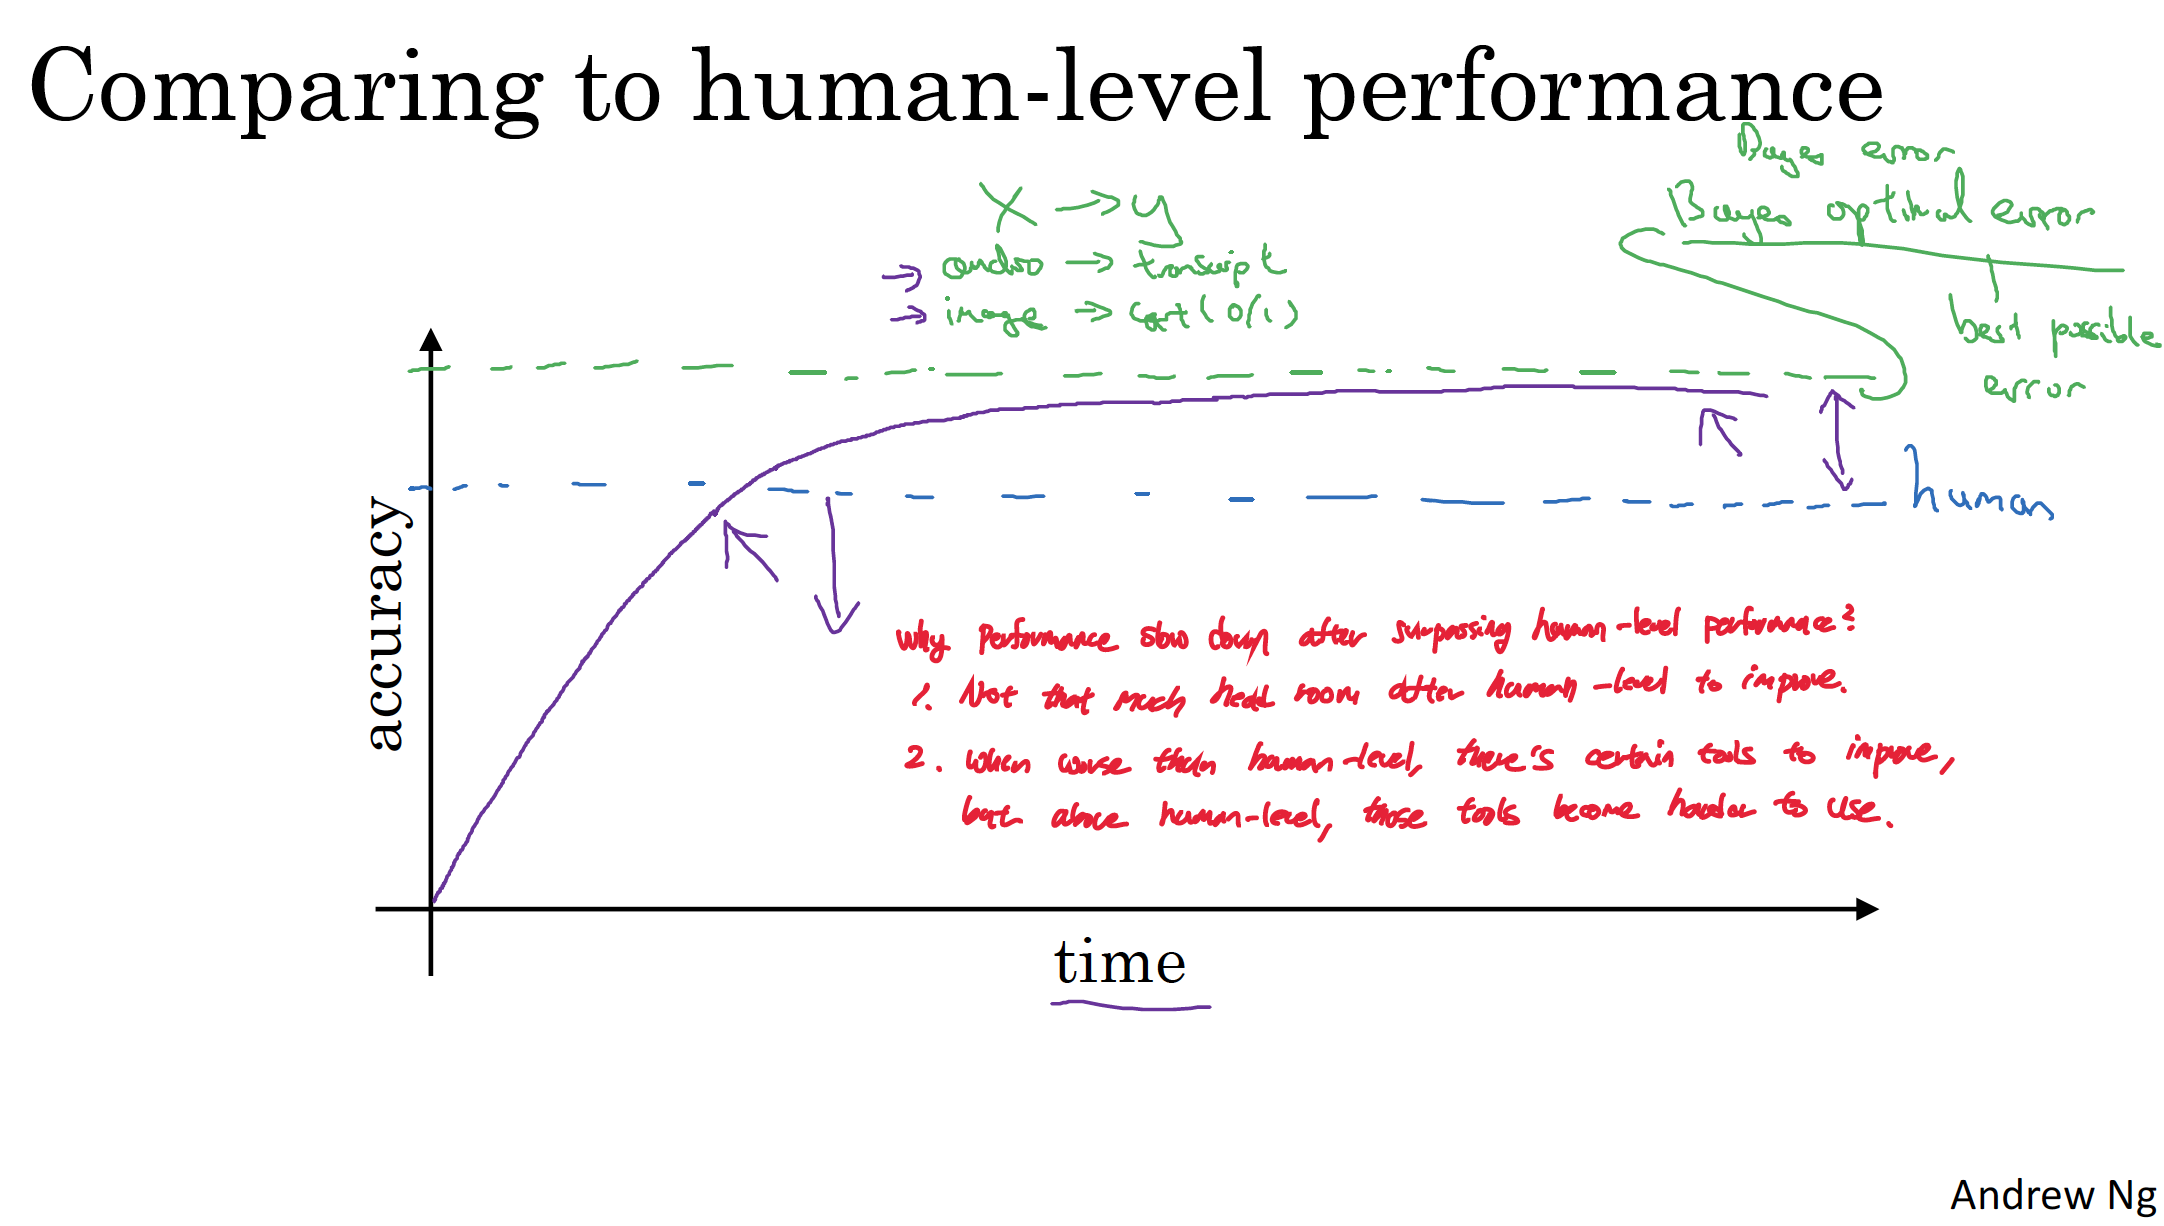 Comparing to human-level performance
Bayes error
Bayes optimal error
best possible
error
X → y
audio → transcript
image → cat (0/1)
human
accuracy
Why performance slow down after surpassing human-level performance?
1. Not that much head room after human-level to improve.
2. When worse than human-level, there's certain tools to improve,
but above human-level, those tools become harder to use.
time
Andrew Ng